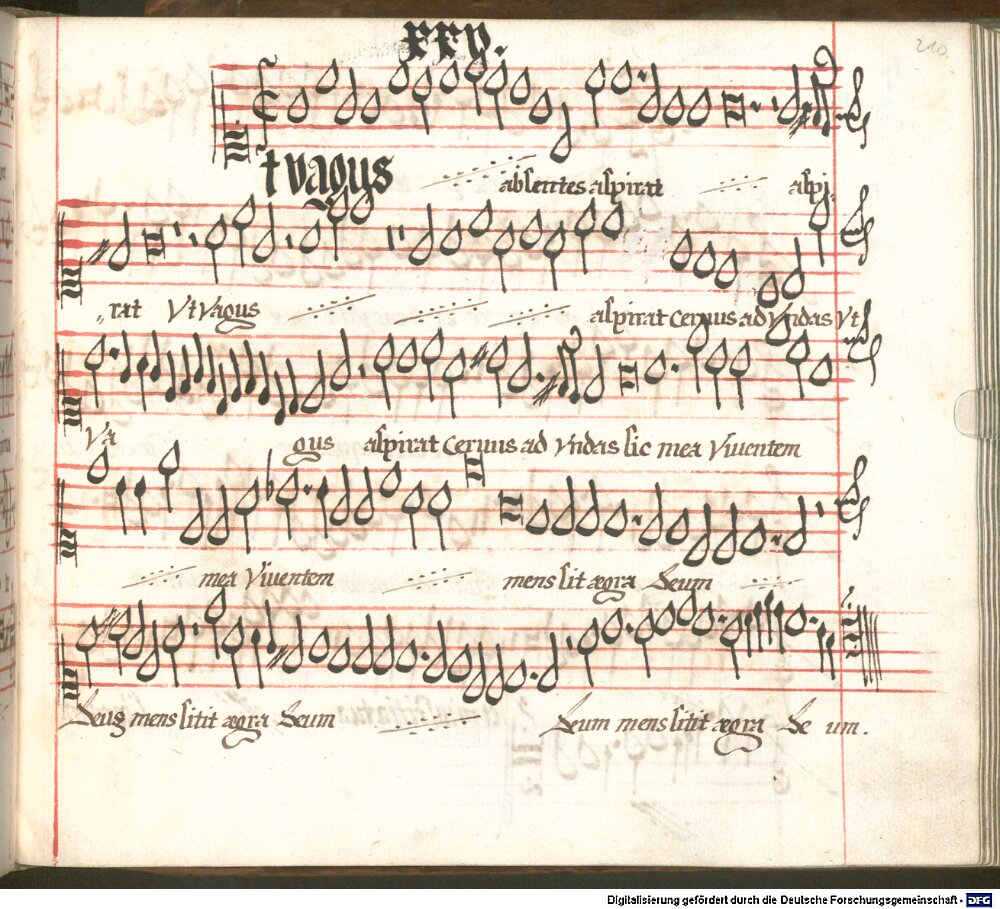 xxv.
210
t vagus absentes aspirat aspi
rat Vt Vagus aspirat ceruus ad Vndas Vt
Va gus aspirat ceruus ad Vndas sic mea Viuentem
mea Viuentem mens sitit ægra Deum
Deum mens sitit ægra Deum Deum mens sitit ægra De um.
Digitalisierung gefördert durch die Deutsche Forschungsgemeinschaft - DFG